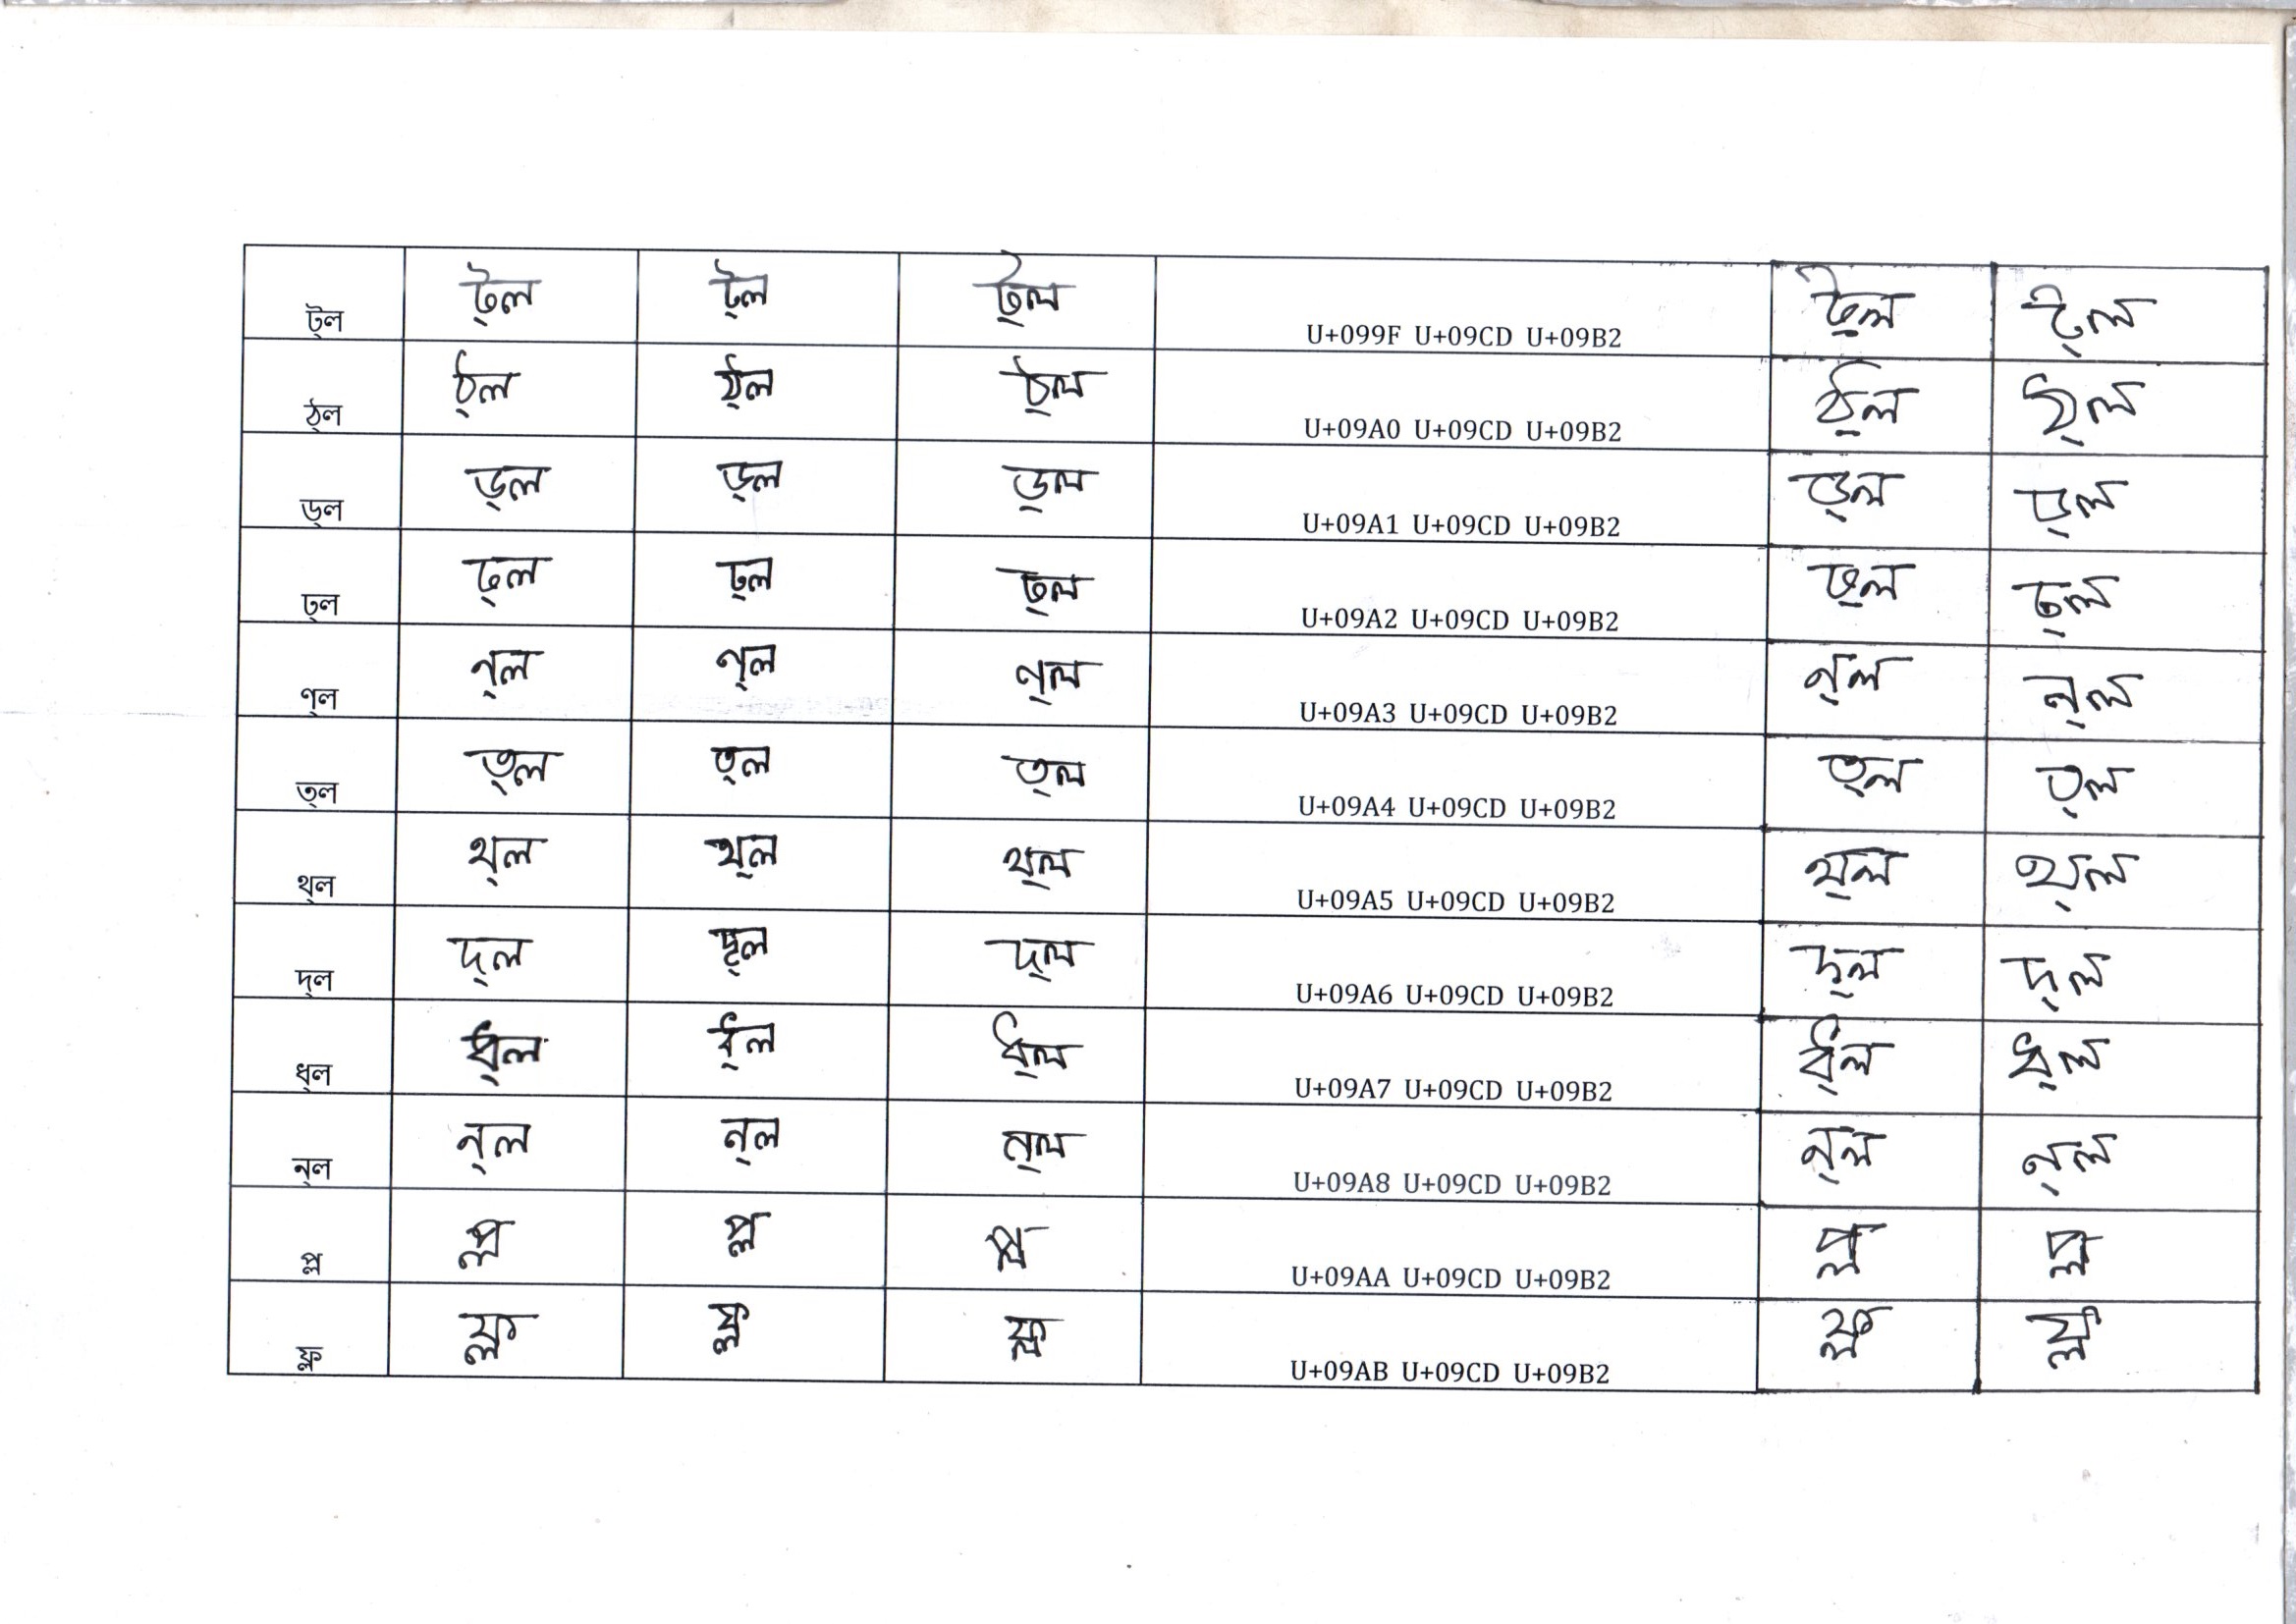 ট্ল ট্ল ট্ল ট্ল U+099F U+09CD U+09B2 ট্ল ট্ল
ঠ্ল ঠ্ল ঠ্ল ঠ্ল U+09A0 U+09CD U+09B2 ঠ্ল ঠ্ল
ড্ল ড্ল ড্ল ড্ল U+09A1 U+09CD U+09B2 ড্ল ড্ল
ঢ্ল ঢ্ল ঢ্ল ঢ্ল U+09A2 U+09CD U+09B2 ঢ্ল ঢ্ল
ণ্ল ণ্ল ণ্ল ণ্ল U+09A3 U+09CD U+09B2 ণ্ল ণ্ল
ত্ল ত্ল ত্ল ত্ল U+09A4 U+09CD U+09B2 ত্ল ত্ল
থ্ল থ্ল থ্ল থ্ল U+09A5 U+09CD U+09B2 থ্ল থ্ল
দ্ল দ্ল দ্ল দ্ল U+09A6 U+09CD U+09B2 দ্ল দ্ল
ধ্ল ধ্ল ধ্ল ধ্ল U+09A7 U+09CD U+09B2 ধ্ল ধ্ল
ন্ল ন্ল ন্ল ন্ল U+09A8 U+09CD U+09B2 ন্ল ন্ল
প্ল প্ল প্ল প্ল U+09AA U+09CD U+09B2 প্ল প্ল
ফ্ল ফ্ল ফ্ল ফ্ল U+09AB U+09CD U+09B2 ফ্ল ফ্ল